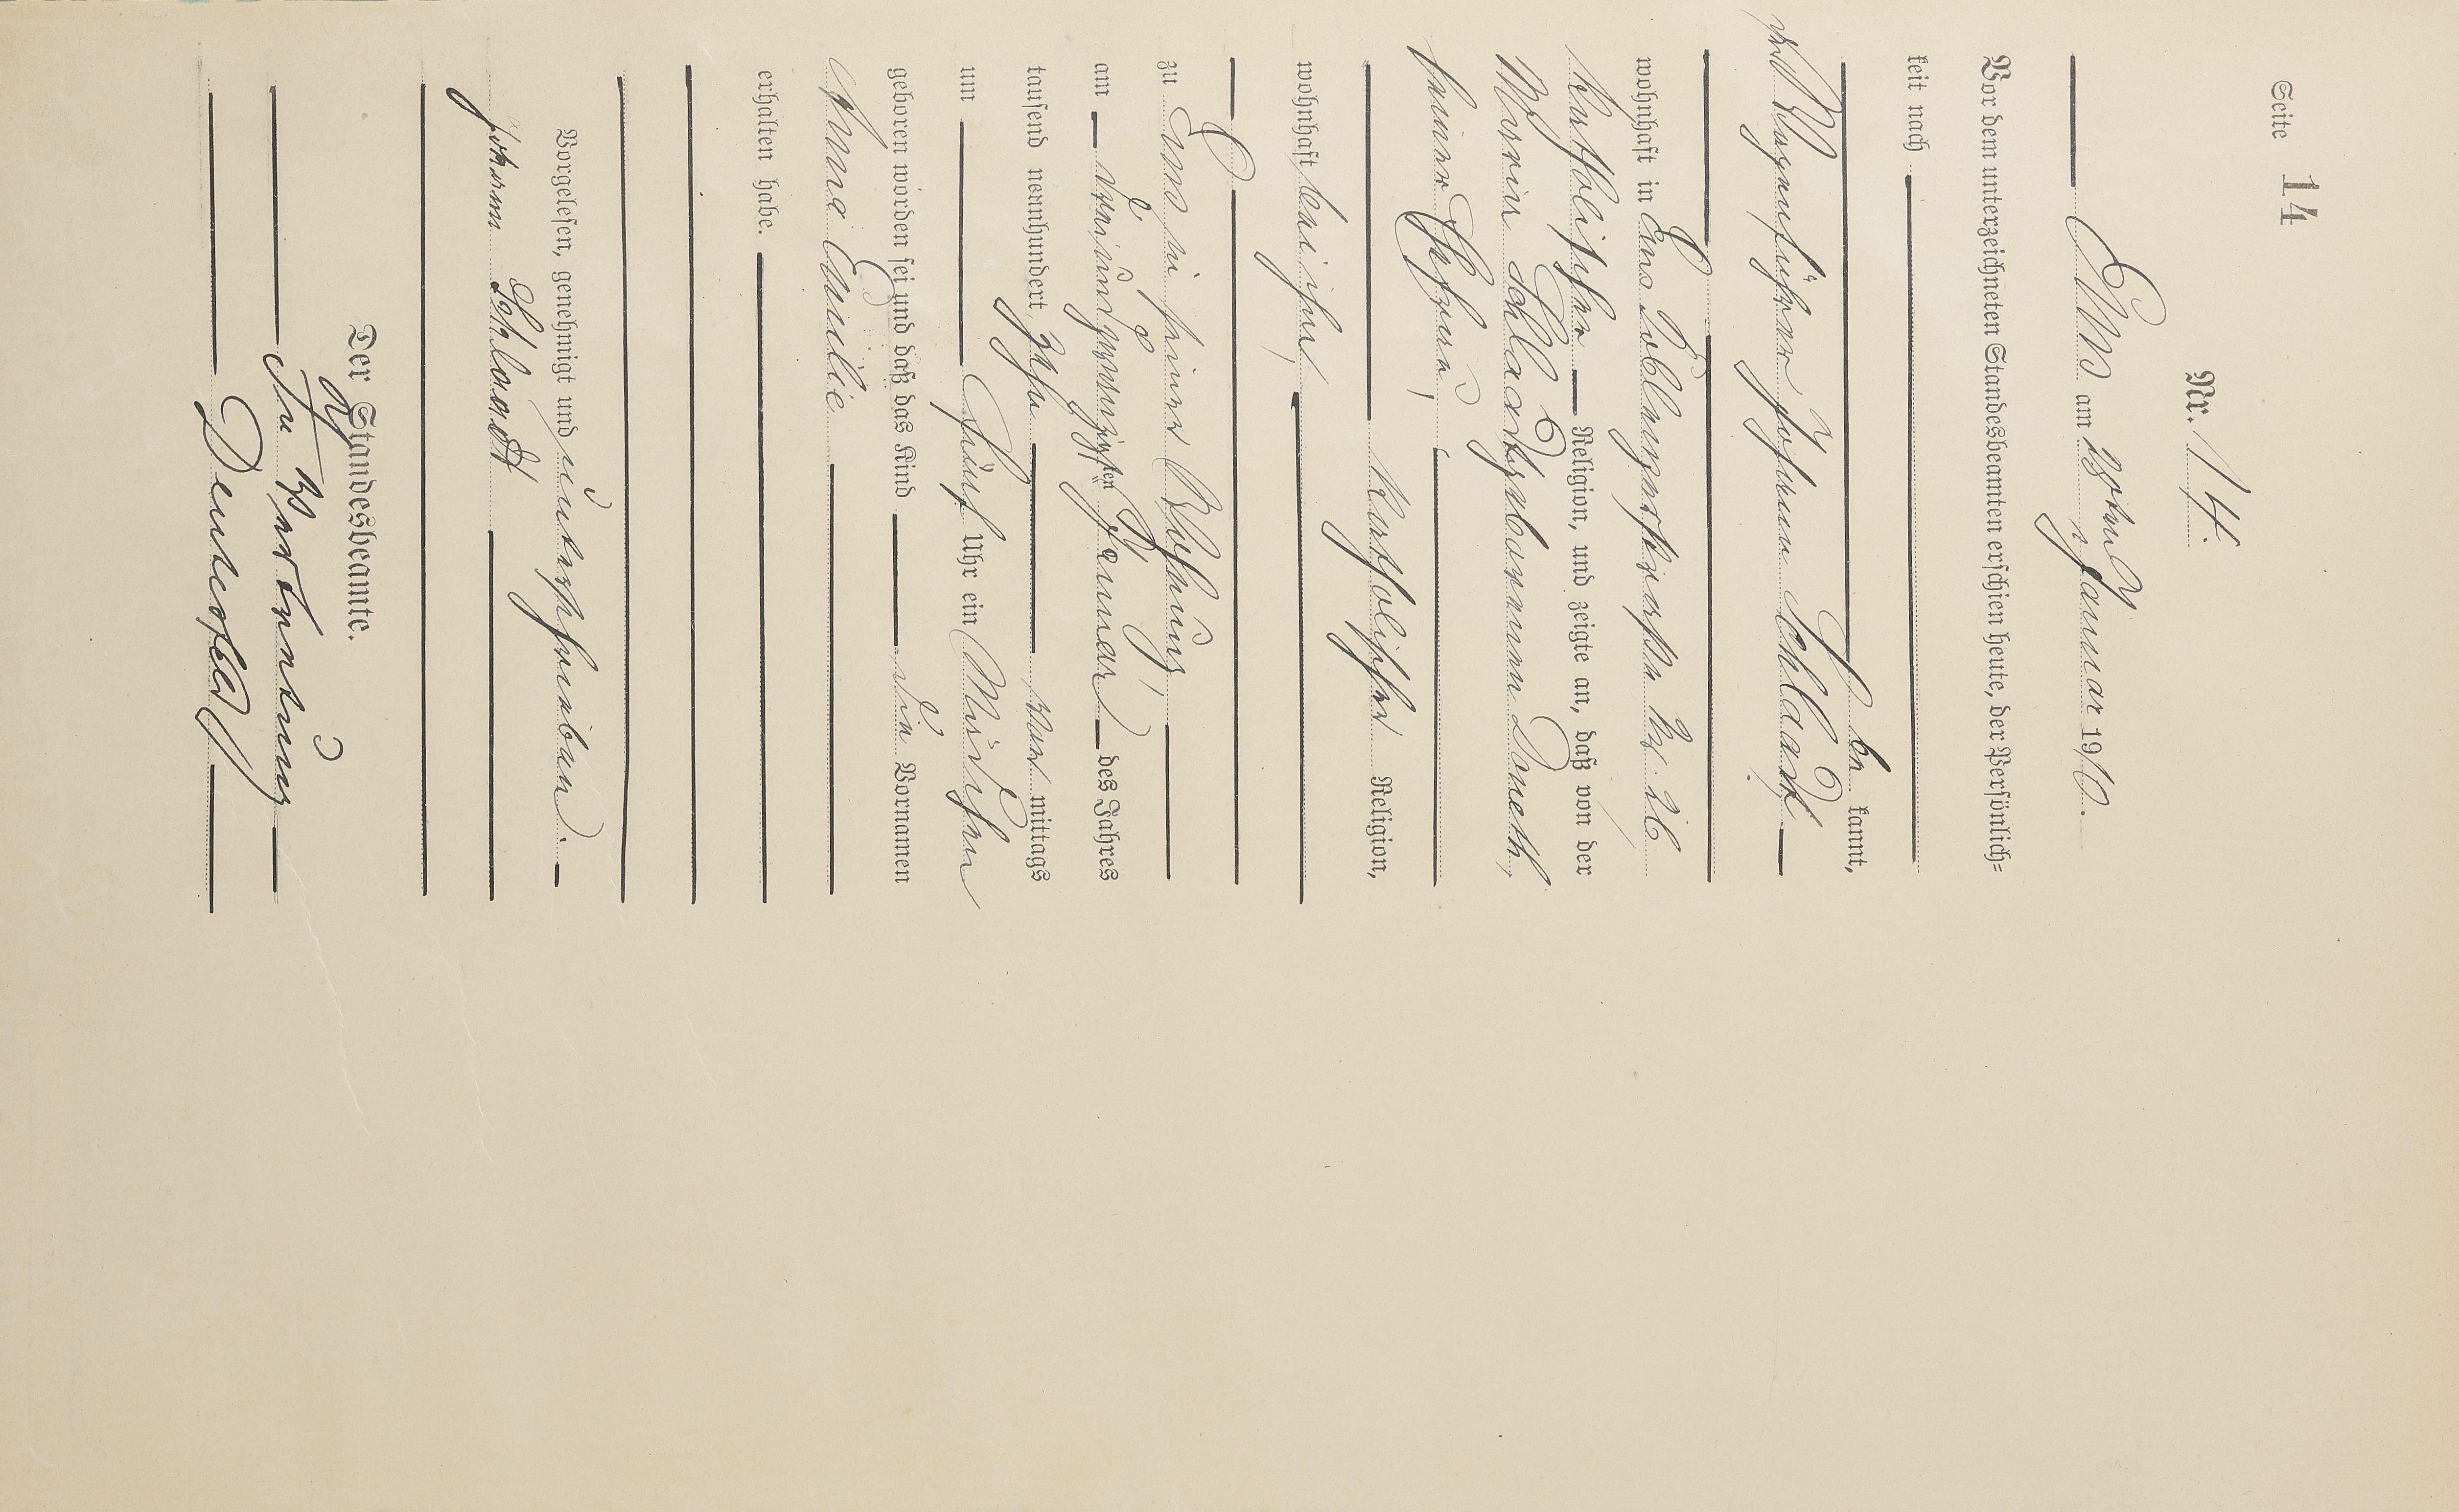 Seite 14
Nr. 14.
Ems am 28ten Januar 1910.
Vor dem unterzeichneten Standesbeamten erschien heute, der Persönlich=
keit nach
be kannt,
der Wagenführer Johann Schlaadt
wohnhaft in Ems Coblenzerstraße Nr. 26
katholischer Religion, und zeigte an, daß von der
Maria Schlaadt, geborenen Doneth,
seiner Ehefrau,
katholischer Religion,
wohnhaft bei ihm,
zu Ems in seiner Wohnung,
am dreiundzwanzigsten Januar des Jahres
tausend neunhundert zehn vor mittags
um fünf Uhr ein Mädchen
geboren worden sei und daß das Kind die Vornamen
Anna Emilie
erhalten habe.
Vorgelesen, genehmigt und unterschrieben.
Johann Schlaadt
Der Standesbeamte.
In Vertretung